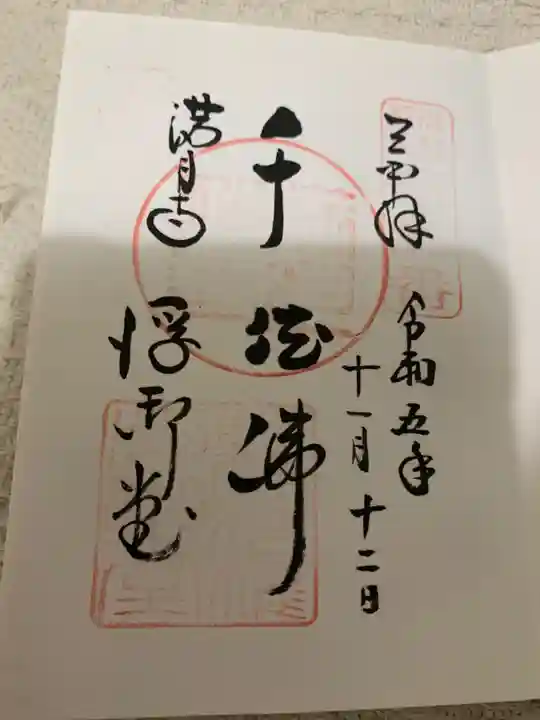 奉拝
令和五年
十一月十二日
千体佛
満月寺
浮御堂